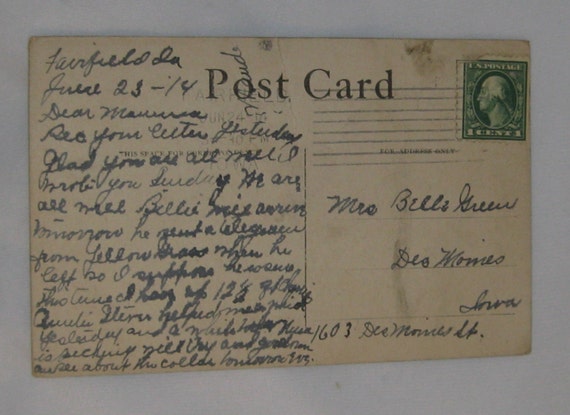 Fairfield Ia
June 23 - 14
Dear Mamma
Rec your letter Yesterday
Glad you are all well I
wrote you Sunday We are
all well Billie will arrive
tomorrow he sent a telegram
from Yellow Grass when he
left so I suppose he
this time I have up 12 qt
Auntie helped me pick
yesterday and a
is well try and go down
and see about the collar tomorrow Eve.
Maude
Post Card
THIS SPACE FOR
FOR ADDRESS ONLY
U.S. POSTAGE
1 CENT 1
Mrs Belle Green
Des Moines
Iowa
1603 Des Moines St.